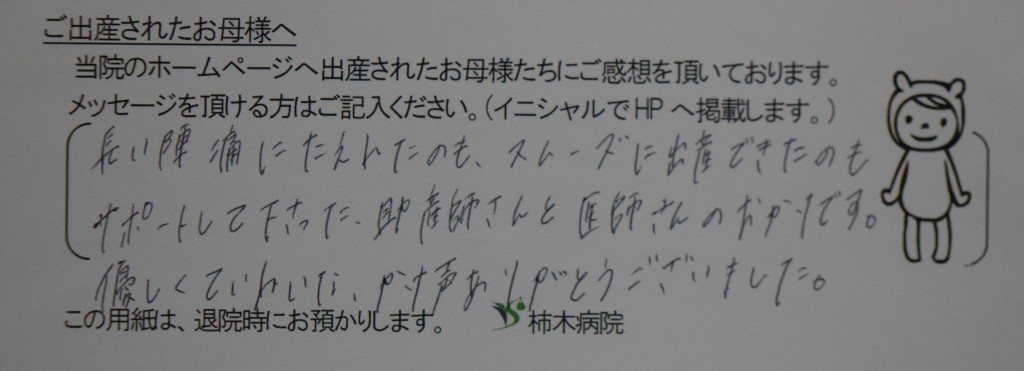 ご出産されたお母様へ
当院のホームページへ出産されたお母様たちにご感想を頂いております。
メッセージを頂ける方はご記入ください。(イニシャルでHPへ掲載します。)
長い陣痛にたえれたのも、スムーズに出産できたのも
サポートして下さった、助産師さんと医師さんのおかげです。
優しくていねいな、かけ声ありがとうございました。
この用紙は、退院時にお預かりします。 柿木病院